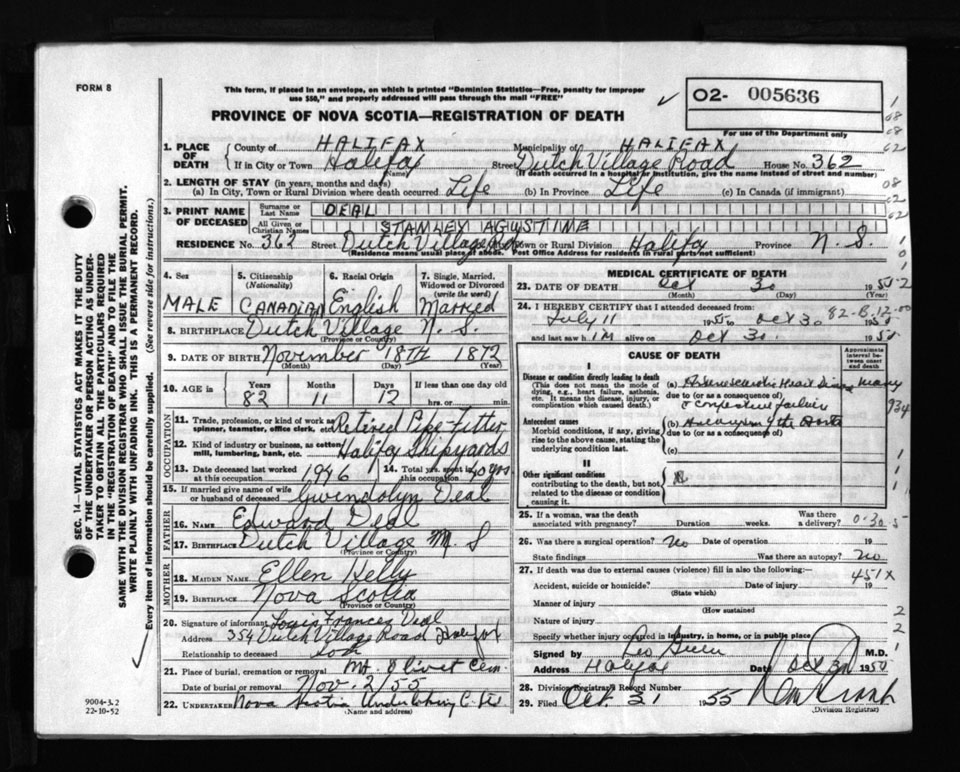 FORM 8
This form, if placed in an envelope, on which is printed "Dominion Statistics—Free, penalty for improper
use $50," and properly addressed will pass through the mail "FREE"
✓
O2- 005636
PROVINCE OF NOVA SCOTIA—REGISTRATION OF DEATH
For use of the Department only
1. PLACE OF DEATH
County of HALIFAX Municipality of HALIFAX
If in City or Town Halifax Street Dutch Village Road House No. 362
(Name) (If death occurred in a hospital or institution, give the name instead of street and number)
2. LENGTH OF STAY (in years, months and days)
(a) In City, Town or Rural Division where death occurred Life (b) In Province Life (c) In Canada (if immigrant)
3. PRINT NAME OF DECEASED
Surname or Last Name DEAL
All Given or Christian Names STANLEY AGUSTINE
RESIDENCE No. 362 Street Dutch Village Rd Town or Rural Division Halifax Province N. S.
(Residence means usual place of abode. Post Office Address for residents in rural parts not sufficient)
4. Sex
MALE
5. Citizenship (Nationality)
CANADIAN
6. Racial Origin
English
7. Single, Married, Widowed or Divorced (write the word)
Married
8. BIRTHPLACE Dutch Village N. S.
(Province or Country)
9. DATE OF BIRTH November 18TH 1872
(Month) (Day) (Year)
10. AGE in
Years Months Days If less than one day old
82 11 12 hrs. or min.
OCCUPATION
11. Trade, profession, or kind of work as spinner, teamster, office clerk, etc. Retired Pipe Fitter
12. Kind of industry or business, as cotton mill, lumbering, bank, etc. Halifax Shipyards
13. Date deceased last worked at this occupation 1946
14. Total yrs. spent in this occupation 40 yrs
15. If married give name of wife or husband of deceased Gwendolyn Deal
FATHER
16. NAME Edward Deal
17. BIRTHPLACE Dutch Village N. S
(Province or Country)
MOTHER
18. MAIDEN NAME Ellen Kelly
19. BIRTHPLACE Nova Scotia
(Province or Country)
20. Signature of informant Louis Frances Deal
Address 354 Dutch Village Road Halifax
Relationship to deceased Son
21. Place of burial, cremation or removal Mt. Olivet Cem.
Date of burial or removal Nov. 2/55
22. UNDERTAKER Nova Scotia Undertaking C. Ltd
(Name and address)
MEDICAL CERTIFICATE OF DEATH
23. DATE OF DEATH Oct 30 1955
(Month) (Day) (Year)
24. I HEREBY CERTIFY that I attended deceased from:
July 11 1955 to Oct 30
and last saw him alive on Oct 30
CAUSE OF DEATH
Approximate interval between onset and death
I
Disease or condition directly leading to death
(This does not mean the mode of dying, e.g., heart failure, asthenia, etc. It means the disease, injury, or complication which caused death.)
(a) Heart Disease many
due to (or as a consequence of)
congestive failure
934
Antecedent causes
Morbid conditions, if any, giving rise to the above cause, stating the underlying condition last.
(b) Aneurysm of the Aorta
due to (or as a consequence of)
(c)
II
Other significant conditions
contributing to the death, but not related to the disease or condition causing it.
25. If a woman, was the death associated with pregnancy? Duration weeks. Was there a delivery?
26. Was there a surgical operation? No Date of operation 19
State findings Was there an autopsy? No
27. If death was due to external causes (violence) fill in also the following:—
451X
Accident, suicide or homicide? Date of injury 19
(State which)
Manner of injury
(How sustained
Nature of injury
Specify whether injury occurred in industry, in home, or in public place
Signed by Leo Green M.D.
Address Halifax Date Oct 30
28. Division Registrar's Record Number
29. Filed Oct. 31 1955
(Division Registrar)
SEC. 14—VITAL STATISTICS ACT MAKES IT THE DUTY
OF THE UNDERTAKER OR PERSON ACTING AS UNDER-
TAKER TO OBTAIN ALL THE PARTICULARS REQUIRED
IN THE "REGISTRATION OF DEATH" AND TO FILE THE
SAME WITH THE DIVISION REGISTRAR WHO SHALL ISSUE THE BURIAL PERMIT.
WRITE PLAINLY WITH UNFADING INK. THIS IS A PERMANENT RECORD.
Every item of information should be carefully supplied. (See reverse side for instructions.)
9004-3.2
22-10-52